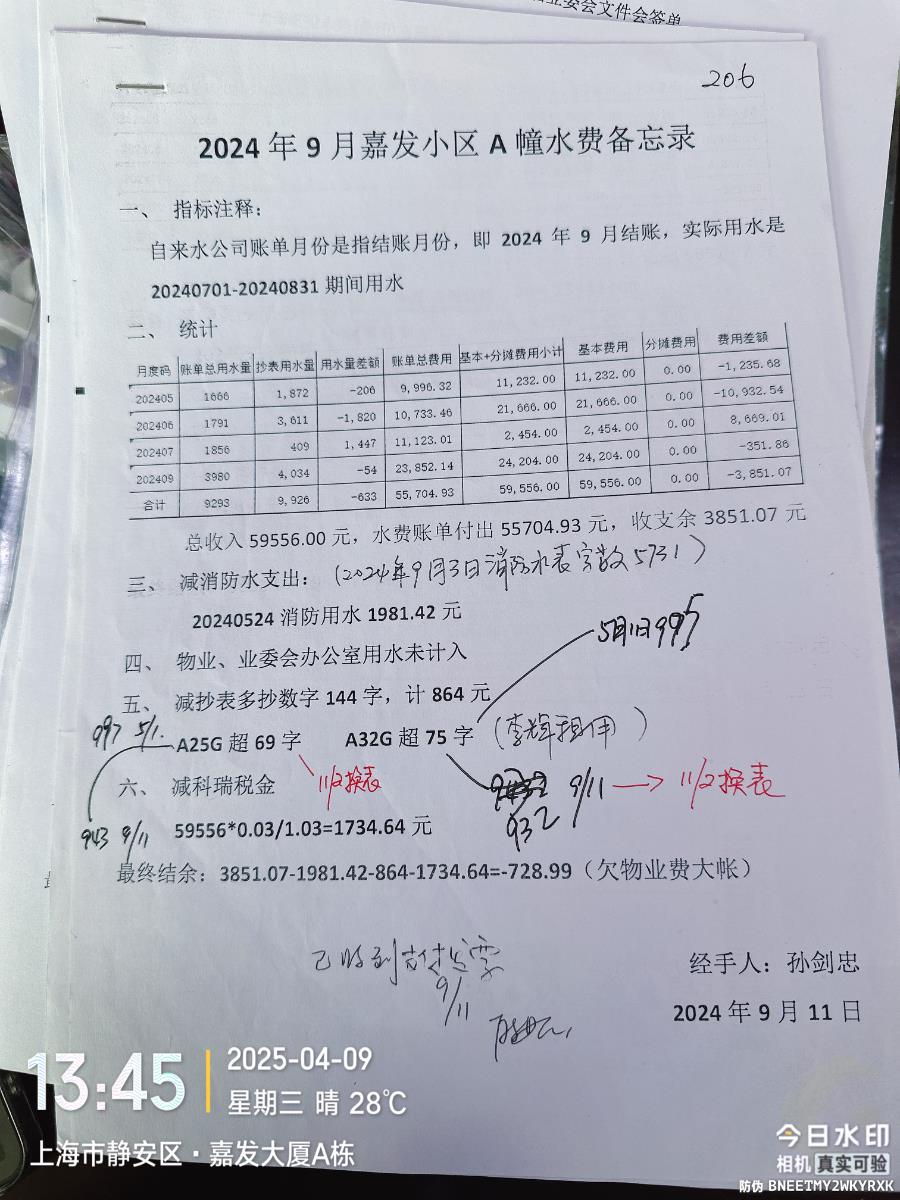 业委会文件会签单
206
2024 年 9 月嘉发小区 A 幢水费备忘录
一、 指标注释：
自来水公司账单月份是指结账月份，即 2024 年 9 月结账，实际用水是
20240701-20240831 期间用水
二、 统计
月度码 账单总用水量 抄表用水量 用水量差额 账单总费用 基本+分摊费用小计 基本费用 分摊费用 费用差额
202405 1666 1,872 -206 9,996.32 11,232.00 11,232.00 0.00 -1,235.68
202406 1791 3,611 -1,820 10,733.46 21,666.00 21,666.00 0.00 -10,932.54
202407 1856 409 1,447 11,123.01 2,454.00 2,454.00 0.00 8,669.01
202409 3980 4,034 -54 23,852.14 24,204.00 24,204.00 0.00 -351.86
合计 9293 9,926 -633 55,704.93 59,556.00 59,556.00 0.00 -3,851.07
总收入 59556.00 元，水费账单付出 55704.93 元，收支余 3851.07 元
三、 减消防水支出： （2024年9月3日消防水表字数5731）
20240524 消防用水 1981.42 元
5月1日995
四、 物业、业委会办公室用水未计入
五、 减抄表多抄数字 144 字，计 864 元
997 5/1.
A25G 超 69 字 A32G 超 75 字
六、 减科瑞税金
11/2换表
9/11 → 11/2换表
932
59556*0.03/1.03=1734.64 元
943 9/11
最终结余：3851.07-1981.42-864-1734.64=-728.99（欠物业费大帐）
已收到
9/11
经手人：孙剑忠
2024 年 9 月 11 日
13:45
2025-04-09
星期三 晴 28℃
上海市静安区·嘉发大厦A栋
今日水印
相机 真实可验
防伪 BNEETMY2WKYRXK